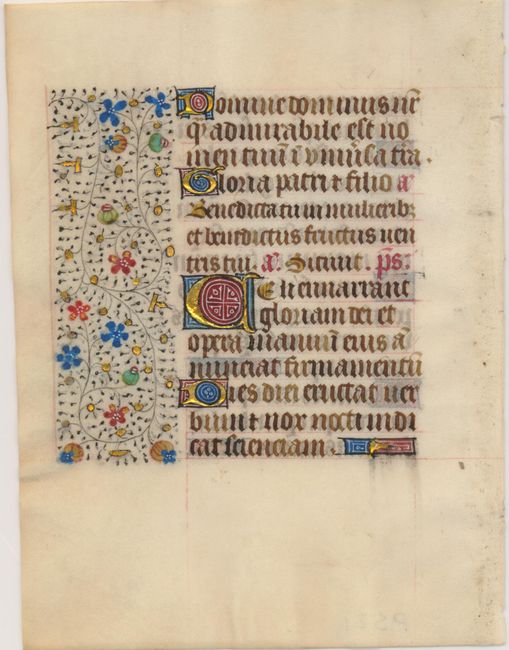 Domine dominus nr̄
q̄ admirabile est no
men tuū ī vniūsa tr̄a.
Gloria patri et filio a̅
Benedicta tu in mulieribꝫ
et benedictus fructus uen
tris tui. a̅. Sicut ps̄.
Celi enarrant
gloriam dei et
opera manuū eius an̄
nunciat firmamentū
Dies diei eructat uer
bum et nox nocti indi
cat scienciam.